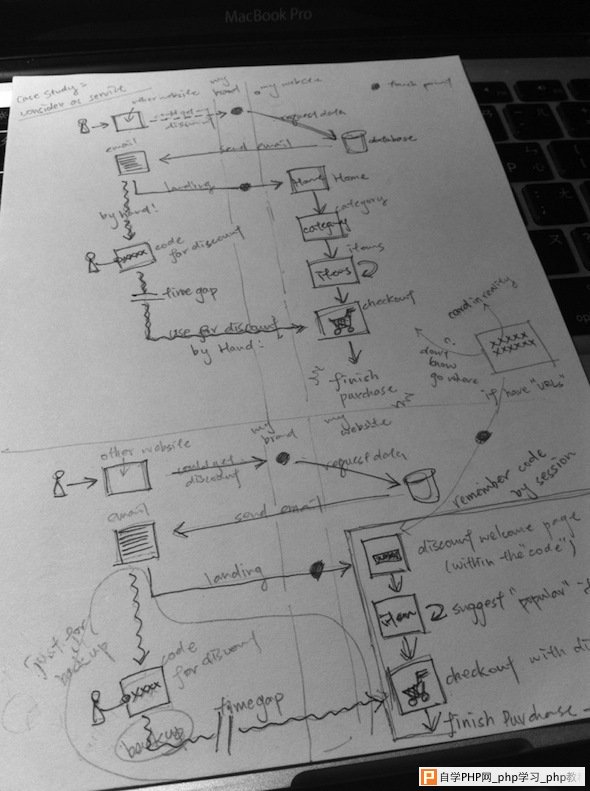 MacBook Pro
case study:
consider as service
my brand
my website
touch point
other website
could get my discount
request data
database
email
send email
landing
Home Home
by hand!
category
category
code for discount
xxxx
items
items
time gap
checkout
use for discount
by Hand!
finish purchase
card in reality
xxxxx
xxxxxx
don't know go where
if have "URLs"
other website
my brand
my website
could get discount
request data
remember code by session
email
send email
landing
discount welcome page
(within the "code")
item
suggest "popular"
just for back up
code for discount
xxxx
checkout with
backup
time gap
finish purchase
自学PHP网_php学习_php教